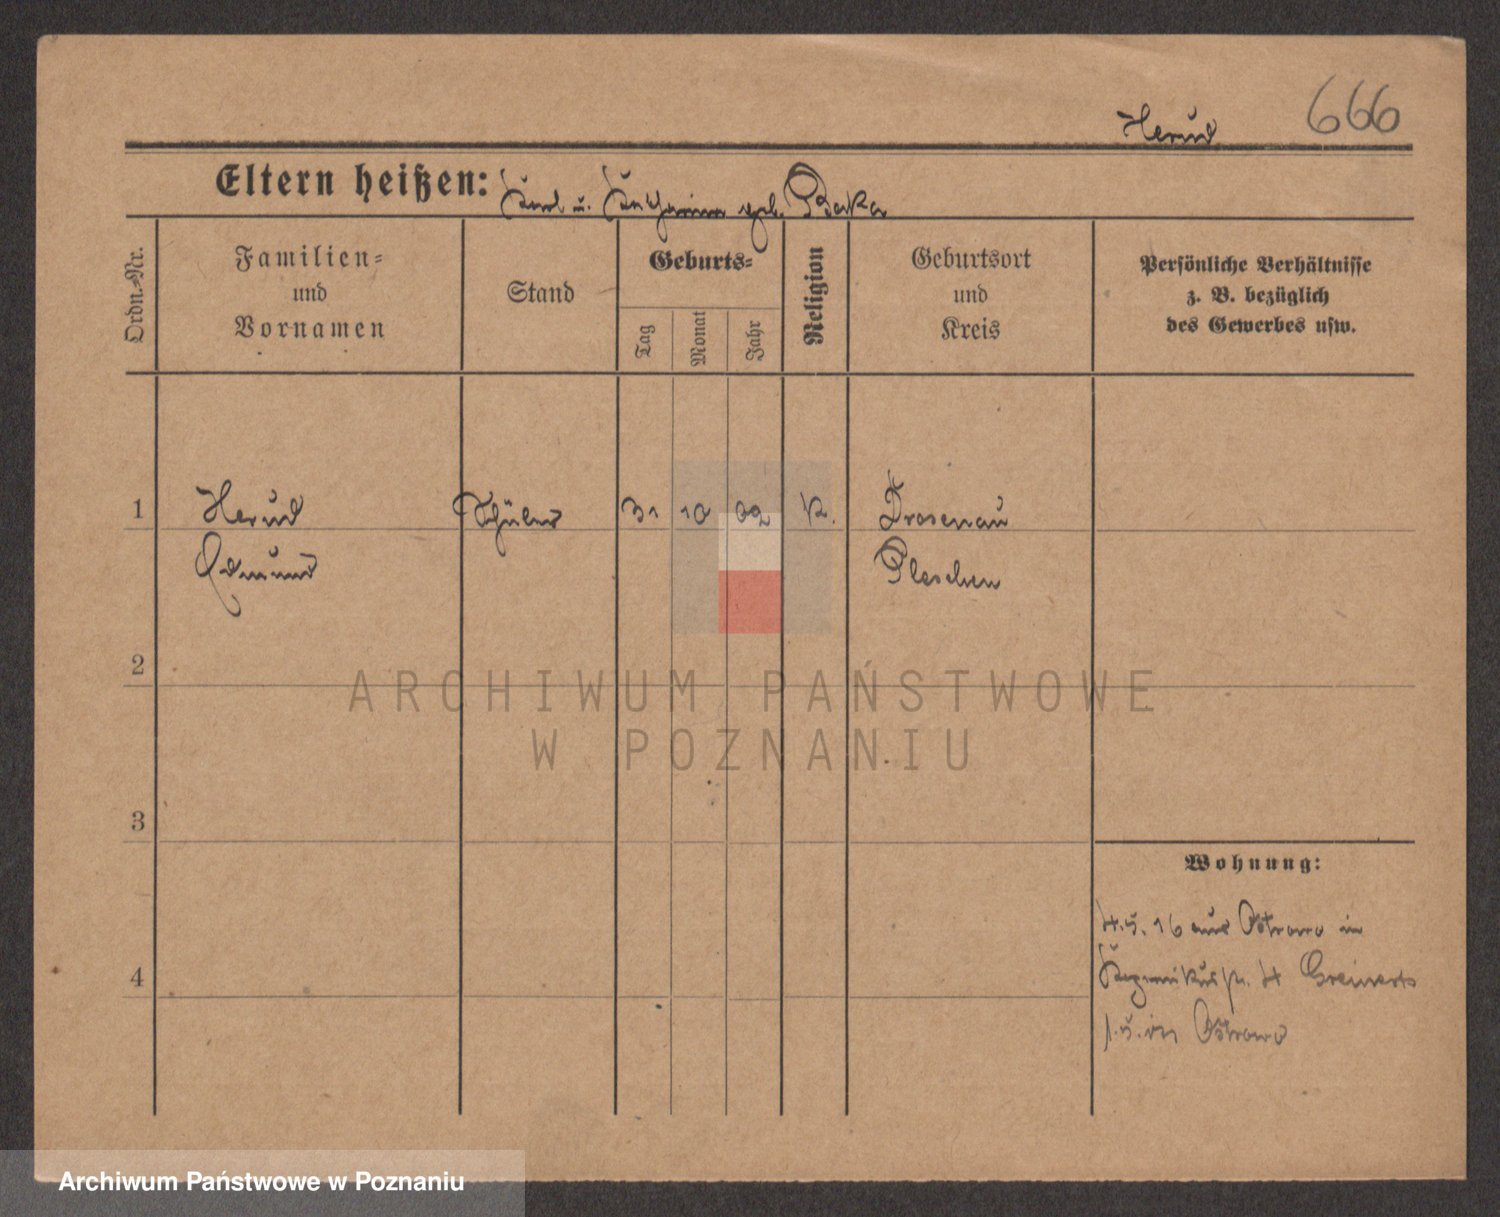 666
Herud
Eltern heißen: Karl u. Katharina geb. Baka
Ordn.-Nr.
Familien-
und
Vornamen
Stand
Geburts-
Tag
Monat
Jahr
Religion
Geburtsort
und
Kreis
Persönliche Verhältnisse
z. B. bezüglich
des Gewerbes usw.
1 Herud Schüler 31 10 02 K. Drosenau
Edmund Pleschen
2
ARCHIWUM PAŃSTWOWE
W POZNANIU
3
Wohnung:
4.5.16 aus Ostrowo in
4
4
in Ostrowo
Archiwum Państwowe w Poznaniu